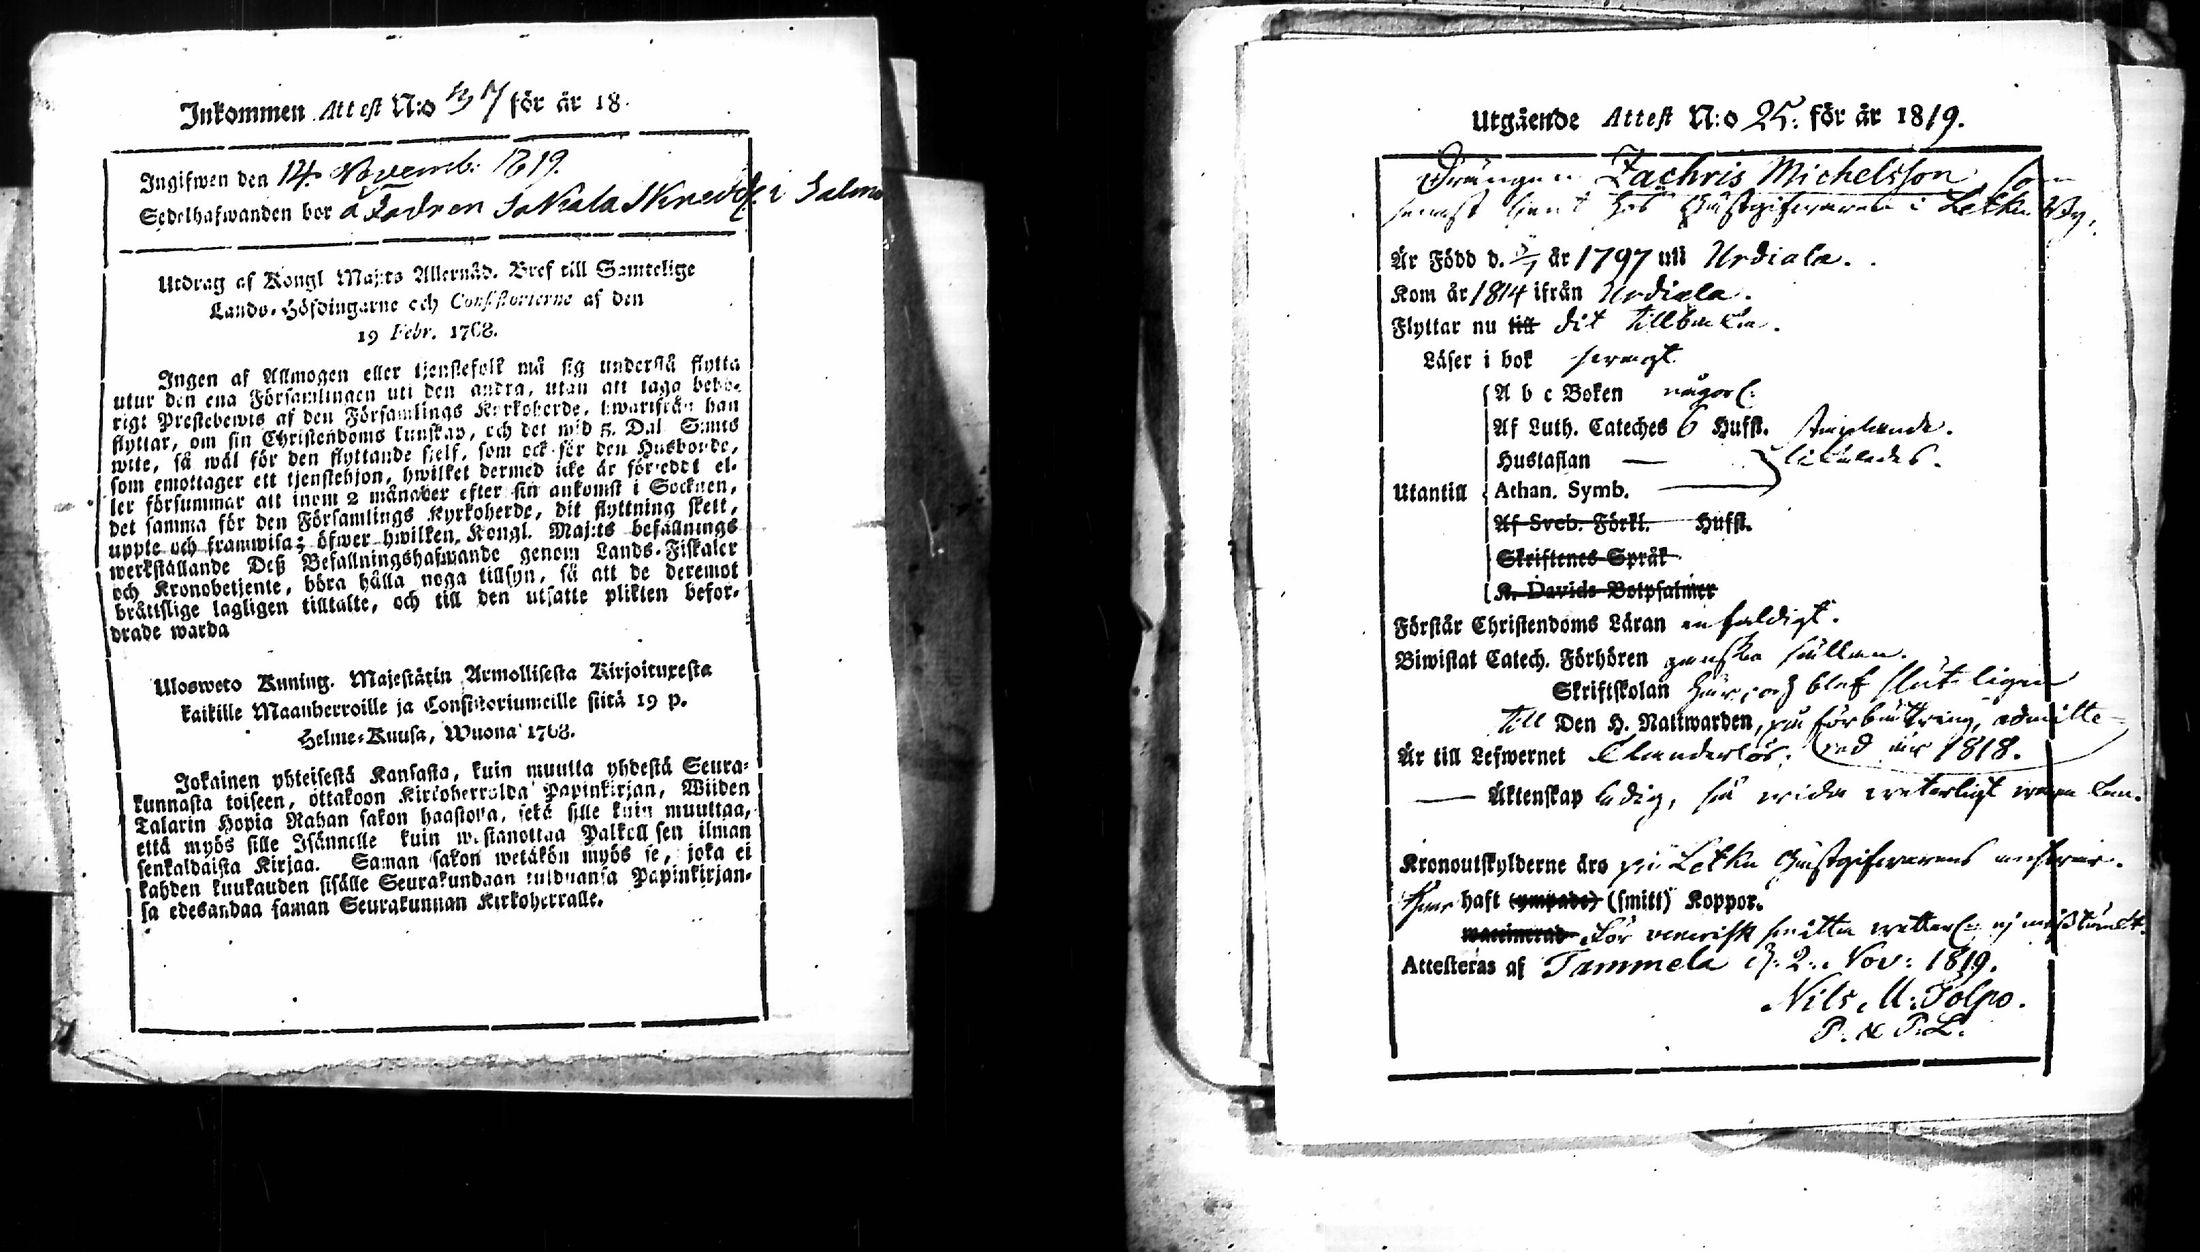 Inkommen Attest N:o 37 för år 18
Ingifwen den 14 Novemb: 1819.
Sedelhafwanden bor å i Salmo
Utdrag af Kongl Maj:ts Allernåd. Bref till Samtelige
Lands-Höfdingarne och Consistorierne af den
19 Febr. 1768.
Ingen af Allmogen eller tjenstefolk må sig understå flytta
utur den ena Församlingen uti den andra, utan att taga behö-
rigt Prestebewis af den Församlings Kyrkoherde, hwarifrån han
flyttar, om sin Christendoms kunskap, och det wid 5. Dal S:mts
wite, så wäl för den flyttande sielf, som ock för den Husbonde,
som emottager ett tjenstehjon, hwilket dermed icke är försedt el-
ler försummar att inom 2 månader efter sin ankomst i Socknen,
det samma för den Församlings Kyrkoherde, dit flyttning skett,
uppte och framwisa; öfwer hwilken, Kongl. Maj:ts befallnings
werkställande Deß Befallningshafwande genom Lands-Fiskaler
och Kronobetjente, böra hålla noga tillsyn, så att de deremot
bråttslige lagligen tilltalte, och till den utsatte plikten befor-
drade warda
Ulosweto Kuning. Majestätin Armollisesta Kirjoituxesta
kaikille Maanherroille ja Consistoriumeille siitä 19 p.
Helme-Kuusa, Wuona 1768.
Jokainen yhteisestä Kansasta, kuin muutta yhdestä Seura-
kunnasta toiseen, ottakoon Kirkoherralda Papinkirjan, Wiiden
Talarin Hopia Rahan sakon haastolla, sekä sille kuin muuttaa,
että myös sille Isännelle kuin wastanottaa Palkollisen ilman
senkaldaista Kirjaa. Saman sakon wetäkön myös se, joka ei
kahden kuukauden sisälle Seurakundaan tulduansa Papinkirjan-
sa edesandaa saman Seurakunnan Kirkoherralle.
Utgående Attest N:o 25. för år 1819.
Drängen Zachris Michelsson, som
senast tjent hos Gästgifwaren i Letku By,
Är Född d. år 1797 uti Urdiala.
Kom år 1814 ifrån Urdiala.
Flyttar nu till dit tillbaka.
Läser i bok swagt
A b c Boken någorl:
Af Luth. Cateches 6 Hufst. staplande.
Hustaflan — likaledes.
Utantill Athan. Symb. —
Af Sveb. Förkl. Hufst.
Skriftenes Språk
K. Davids Botpsalmer
Förstår Christendoms Läran enfaldigt.
Biwistat Catech. Förhören ganska sällan.
Skriftskolan här, och blef sluteligen
till Den H. Nattwarden, på förbättring, admitte-
Är till Lefwernet Clanderlös. rad år 1818.
— Äktenskap ledig, så wida weterligt wara kan.
Kronoutskylderne äro på Letku Gästgifwarens answar.
haft (ympade) (smitt) Koppor.
waccinerad För venerisk smitta wetterl: ej mißtänkt.
Attesteras af Tammela d. 2. Nov: 1819.
Nils M: Tolpo.
P. & P. L.